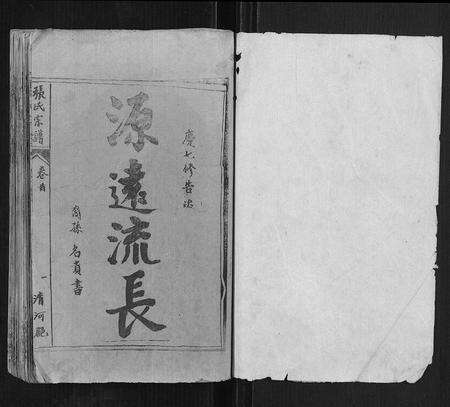 慶七修告竣
源遠流長
裔孫 名貴書
張氏宗譜
卷首
一
清河郡